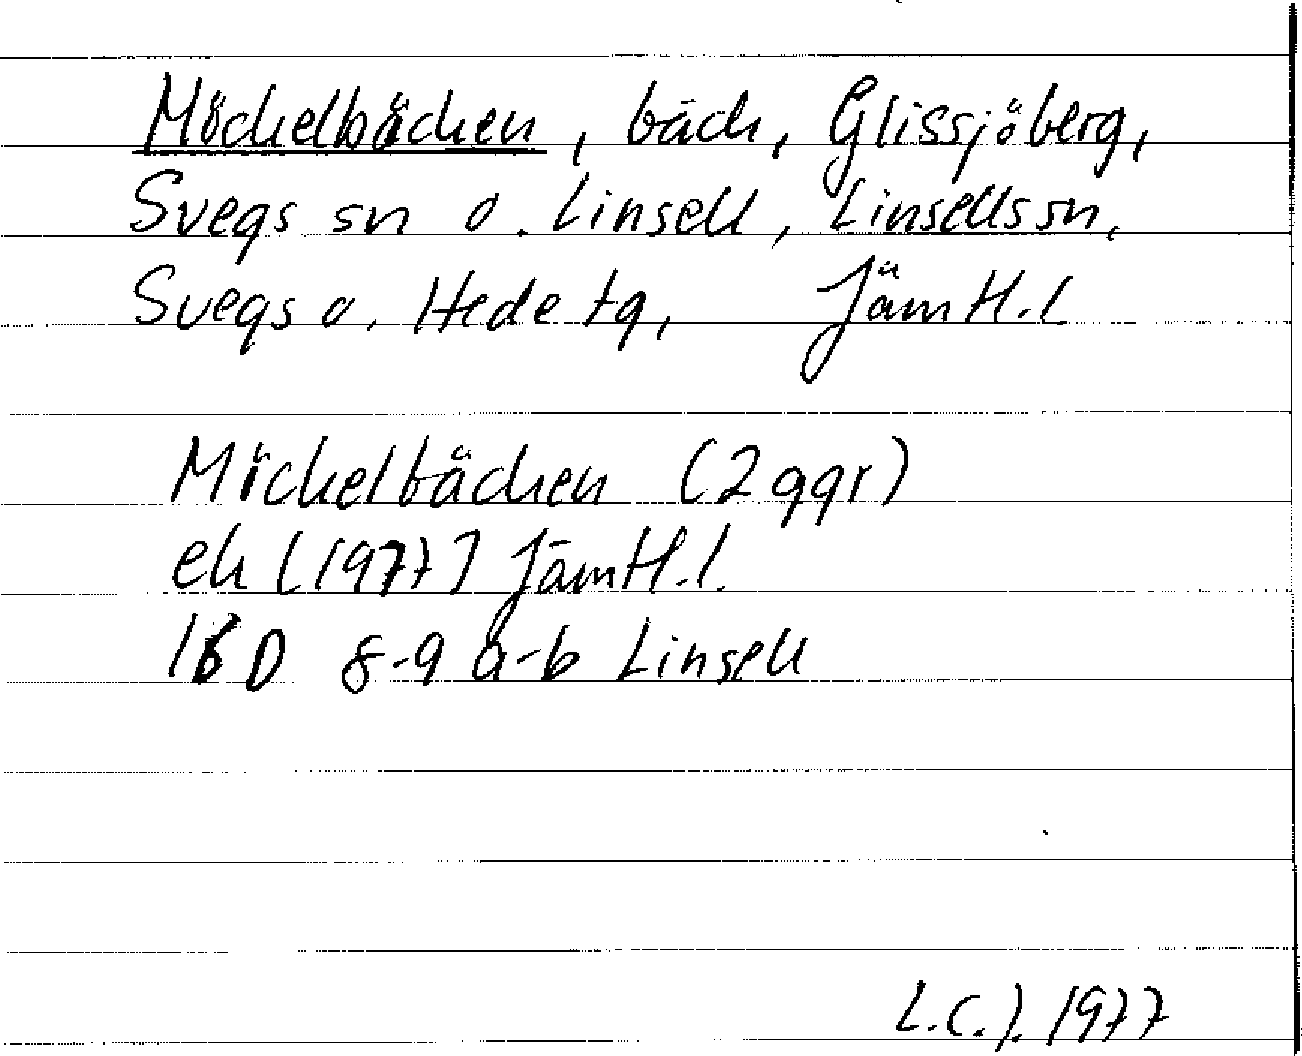 Möckelbäcken, bäck, Glissjöberg,
Svegs sn o. Linsell, Linsells sn,
Svegs o. Hede tg, Jämtl. l
Möckelbäcken (2 ggr)
ek [1977] Jämtl. l.
16D 8-9 a-b Linsell
L.C.J. 1977